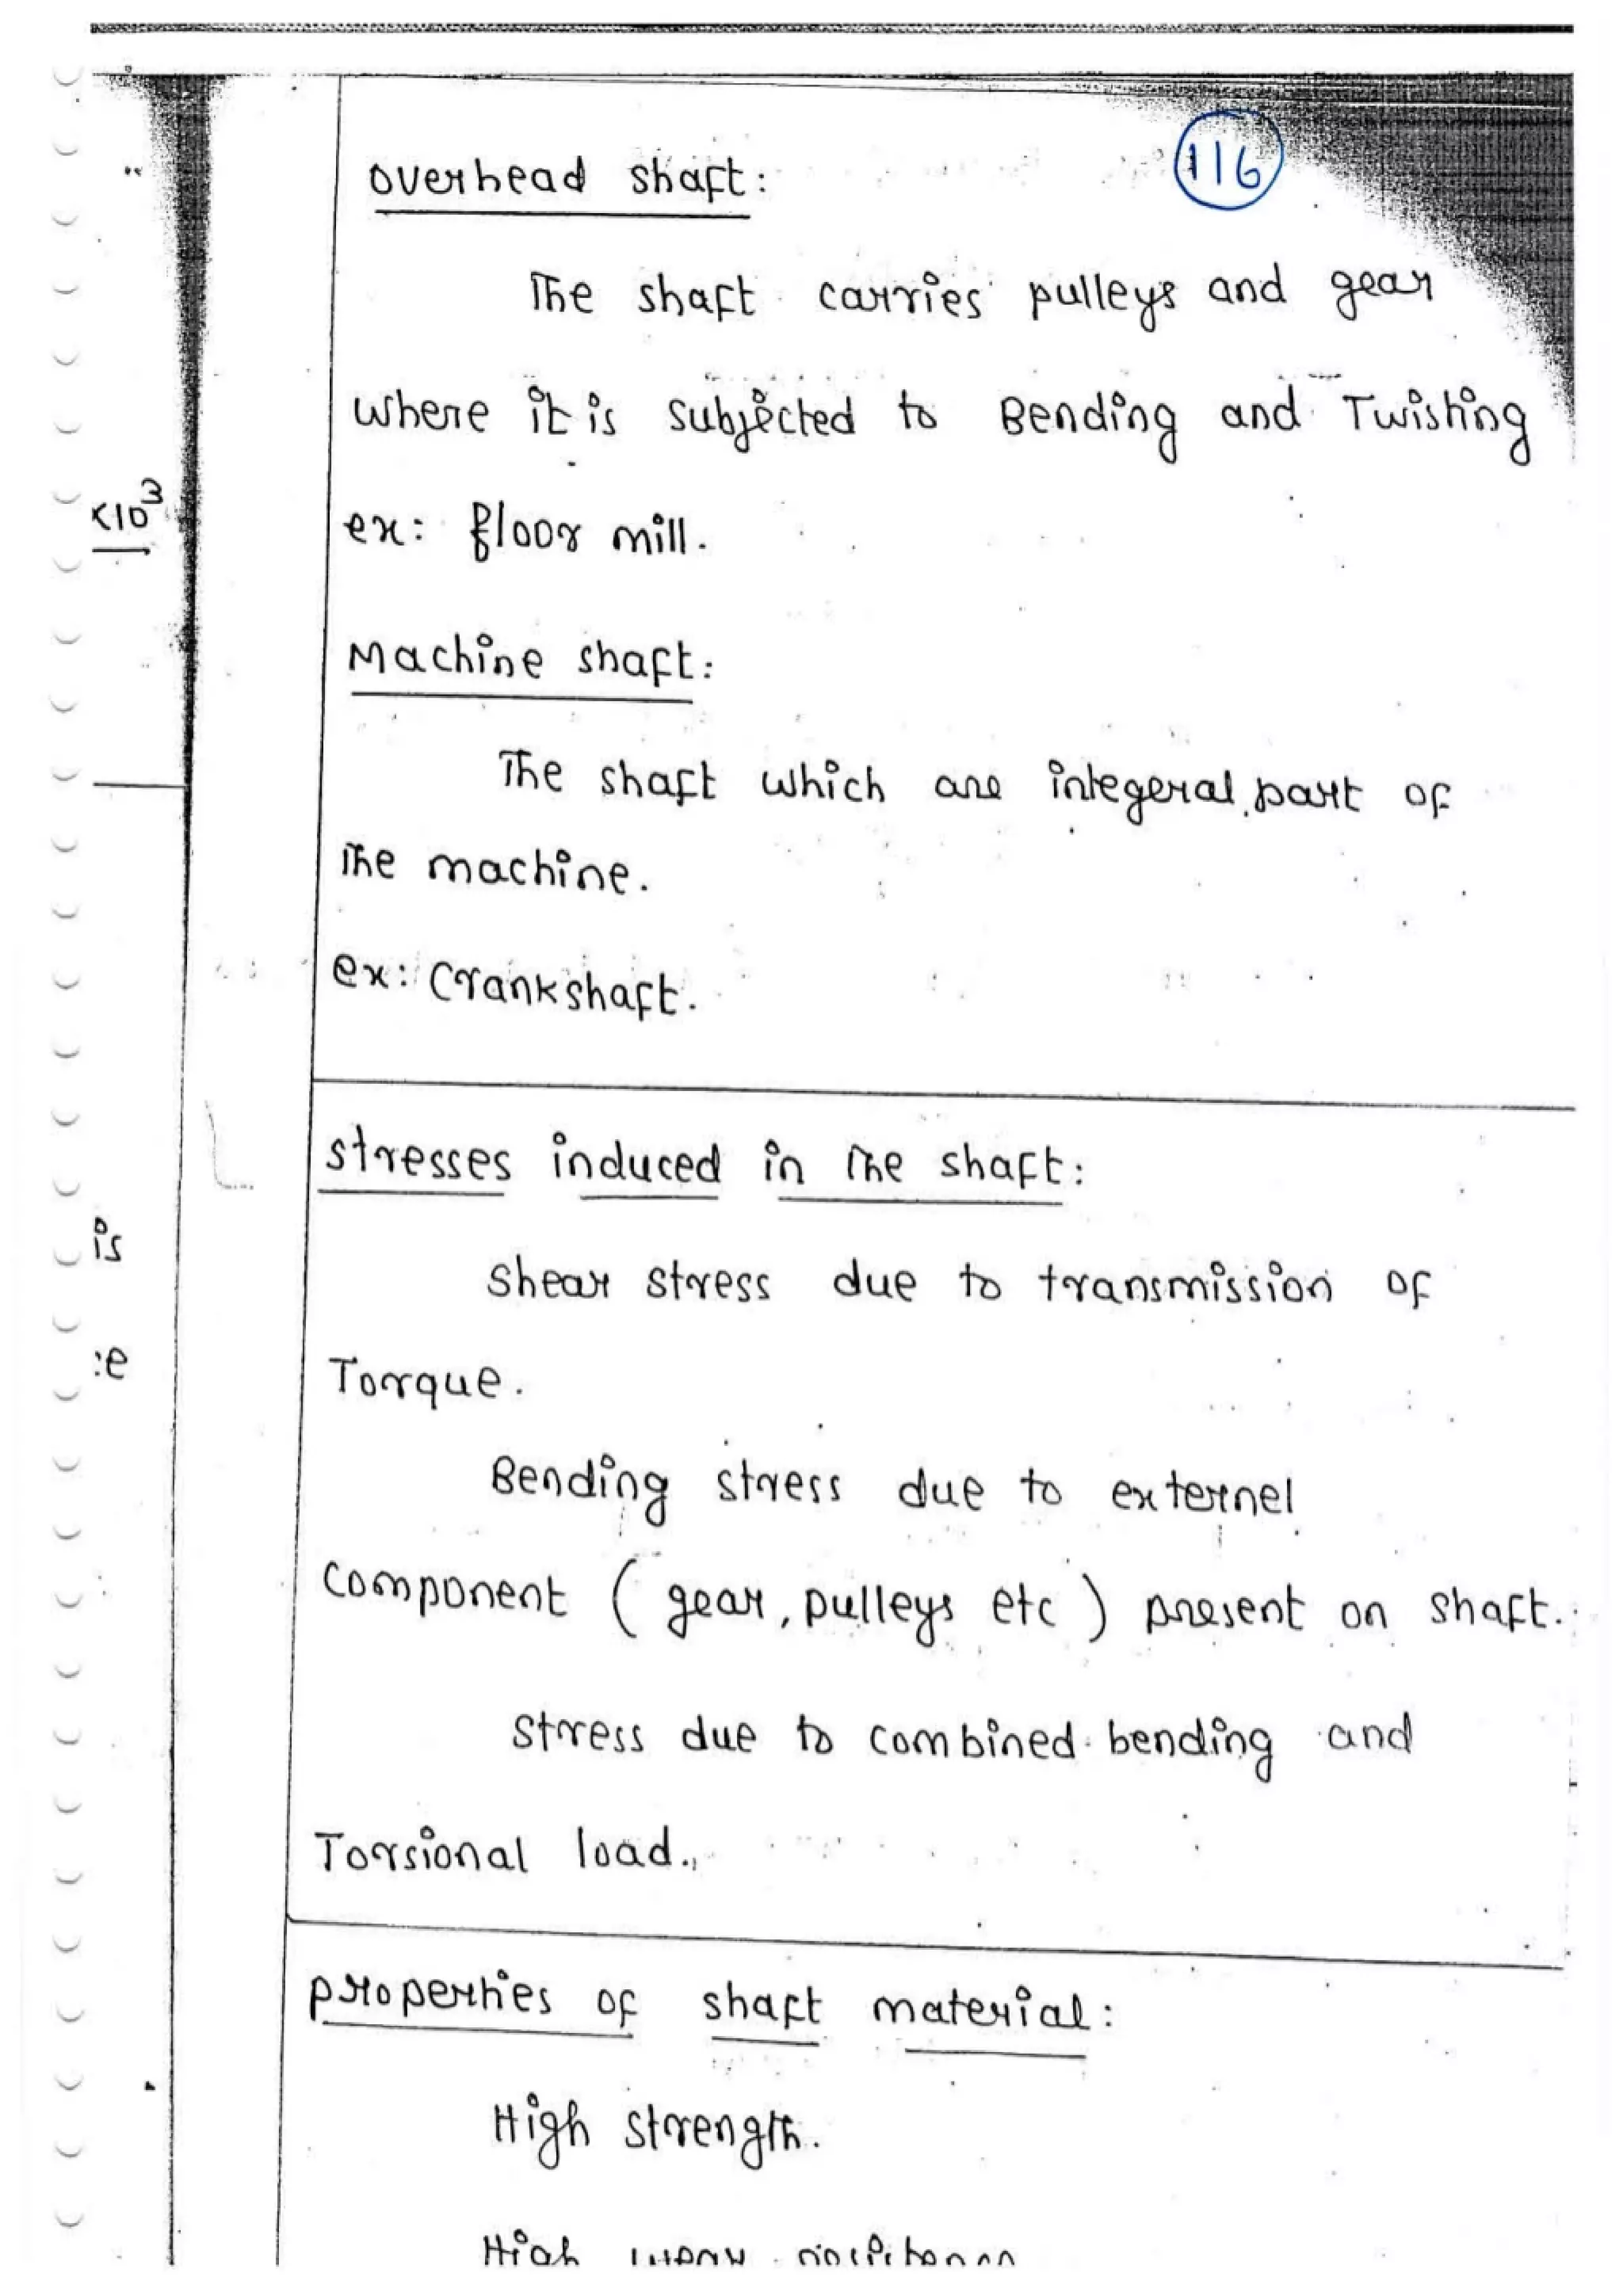 116
overhead shaft:
The shaft carries pulleys and gear
where it is subjected to Bending and Twisting
ex: floor mill.
×10³
Machine shaft:
The shaft which are integeral part of
the machine.
ex: Crankshaft.
stresses induced in the shaft:
is
shear stress due to transmission of
:e
Torque.
Bending stress due to externel
component (gear, pulleys etc) present on shaft.
stress due to combined bending and
Torsional load.
properties of shaft material:
High strength.
High wear